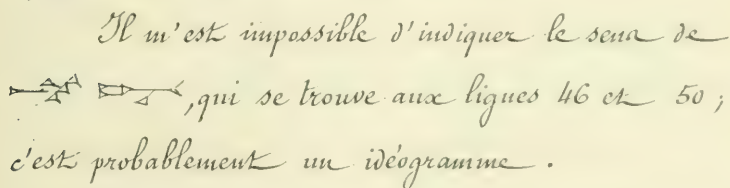 Il m'est impossible d'indiquer le sens de
, qui se trouve aux lignes 46 et 50 ;
c'est probablement un idéogramme .